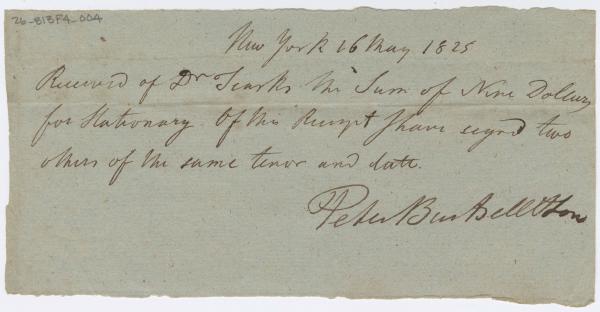 26-B13F4-004
New York 16 May 1825
Received of Dr Searks the Sum of Nine Dollars
for Stationary. Of this Receipt I have signd two
others of the same tenor and date.
Peter Burtsell & Son